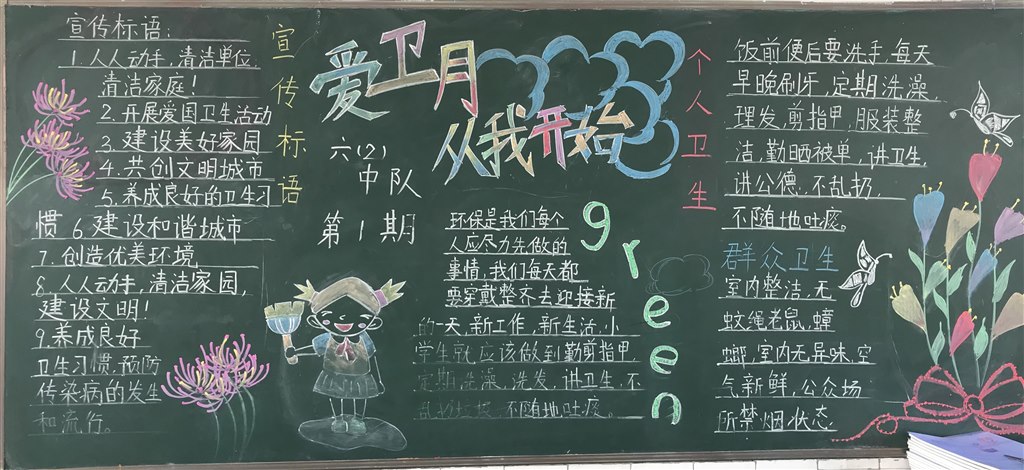 宣传标语:
1.人人动手,清洁单位,
清洁家庭!
2.开展爱国卫生活动
3.建设美好家园
4.共创文明城市
5.养成良好的卫生习
惯 6.建设和谐城市
7.创造优美环境,
8.人人动手,清洁家园,
建设文明!
9.养成良好
卫生习惯,预防
传染病的发生
和流行。
宣传标语
爱卫月
从我开始
六(2)
中队
第1期
环保是我们每个
人应尽力先做的
事情,我们每天都
要穿戴整齐去迎接新
的一天,新工作,新生活,小
学生就应该做到勤剪指甲,
定期洗澡、洗发,讲卫生,不
乱扔垃圾,不随地吐痰。
green
个人卫生
饭前便后要洗手,每天
早晚刷牙,定期洗澡,
理发,剪指甲,服装整
洁,勤晒被单,讲卫生,
讲公德,不乱扔,
不随地吐痰。
群众卫生
室内整洁,无
蚊绳老鼠,蟑
螂,室内无异味,空
气新鲜,公众场
所禁烟状态